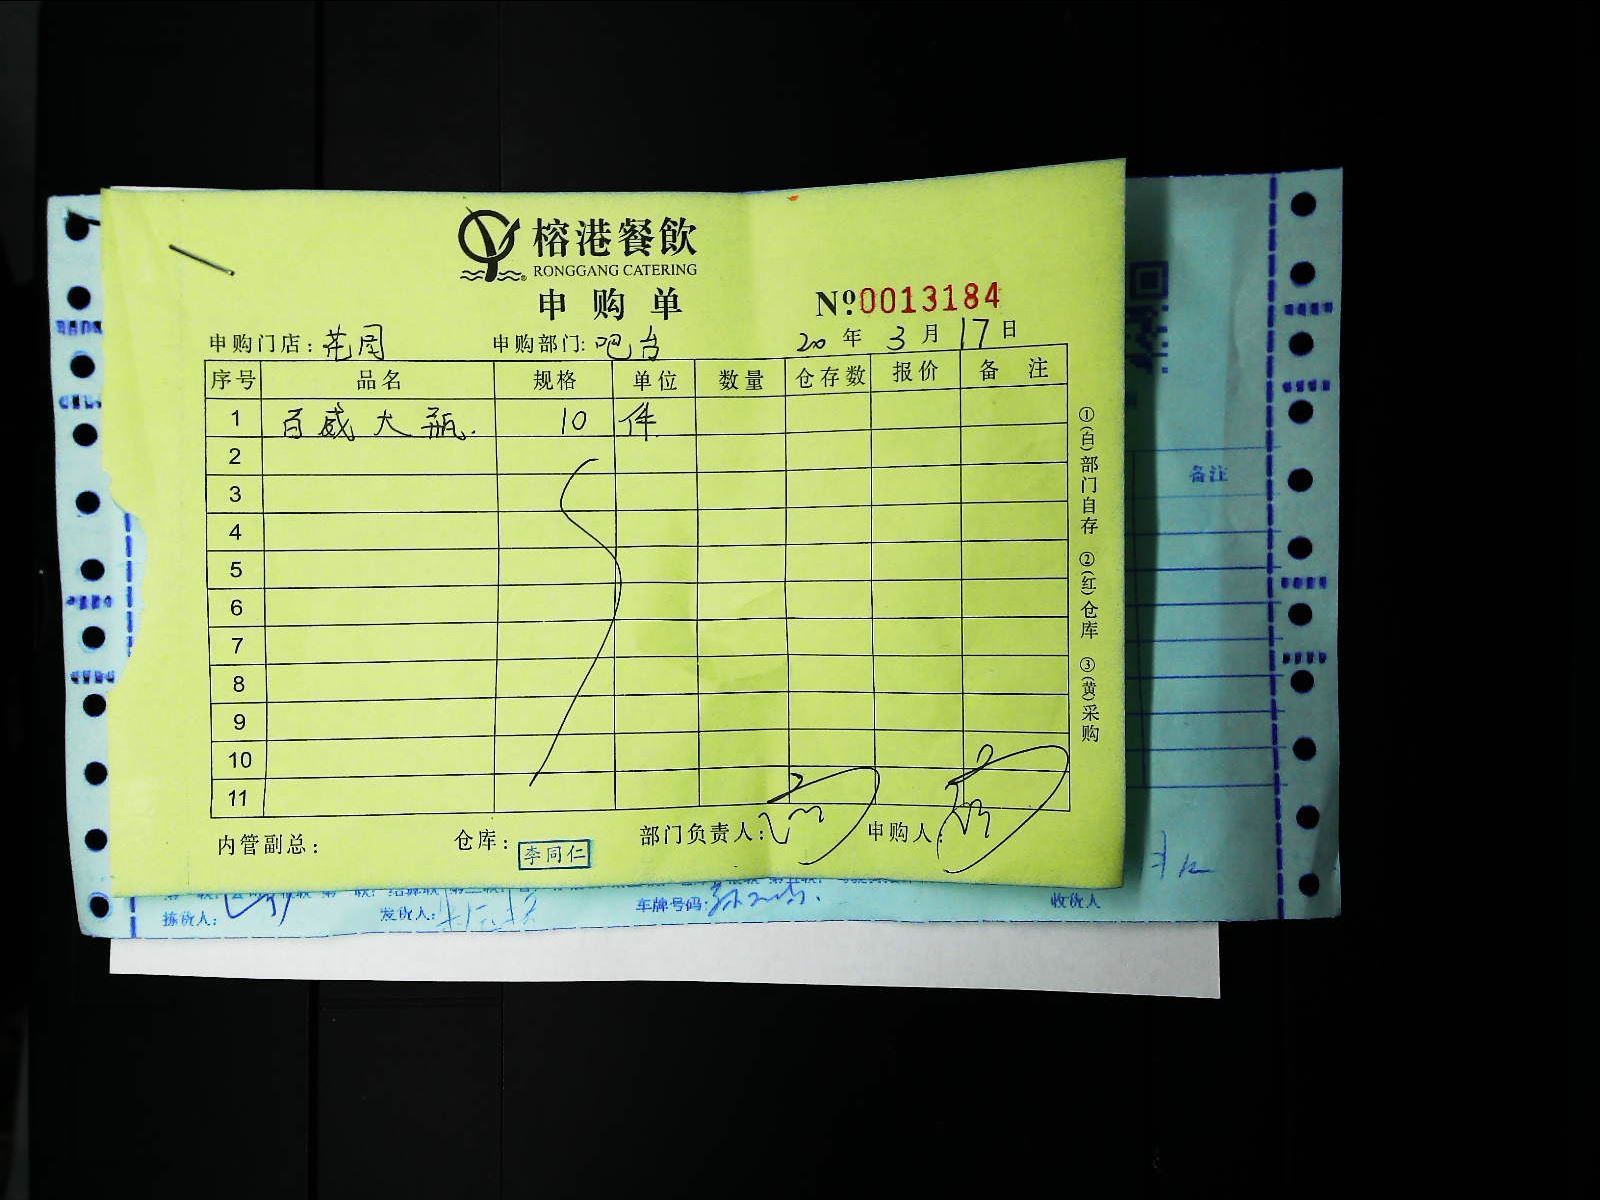 榕港餐飲
RONGGANG CATERING
申购单
№0013184
申购门店：花园 申购部门：吧台 20 年 3 月 17 日
序号 品名 规格 单位 数量 仓存数 报价 备注
1 百威大瓶. 10 件
2
3
4
5
6
7
8
9
10
11
①(白)部门自存 ②(红)仓库 ③(黄)采购
内管副总： 仓库： 李同仁 部门负责人： 申购人：
备注
拣货人： 发货人： 车牌号码： 收货人